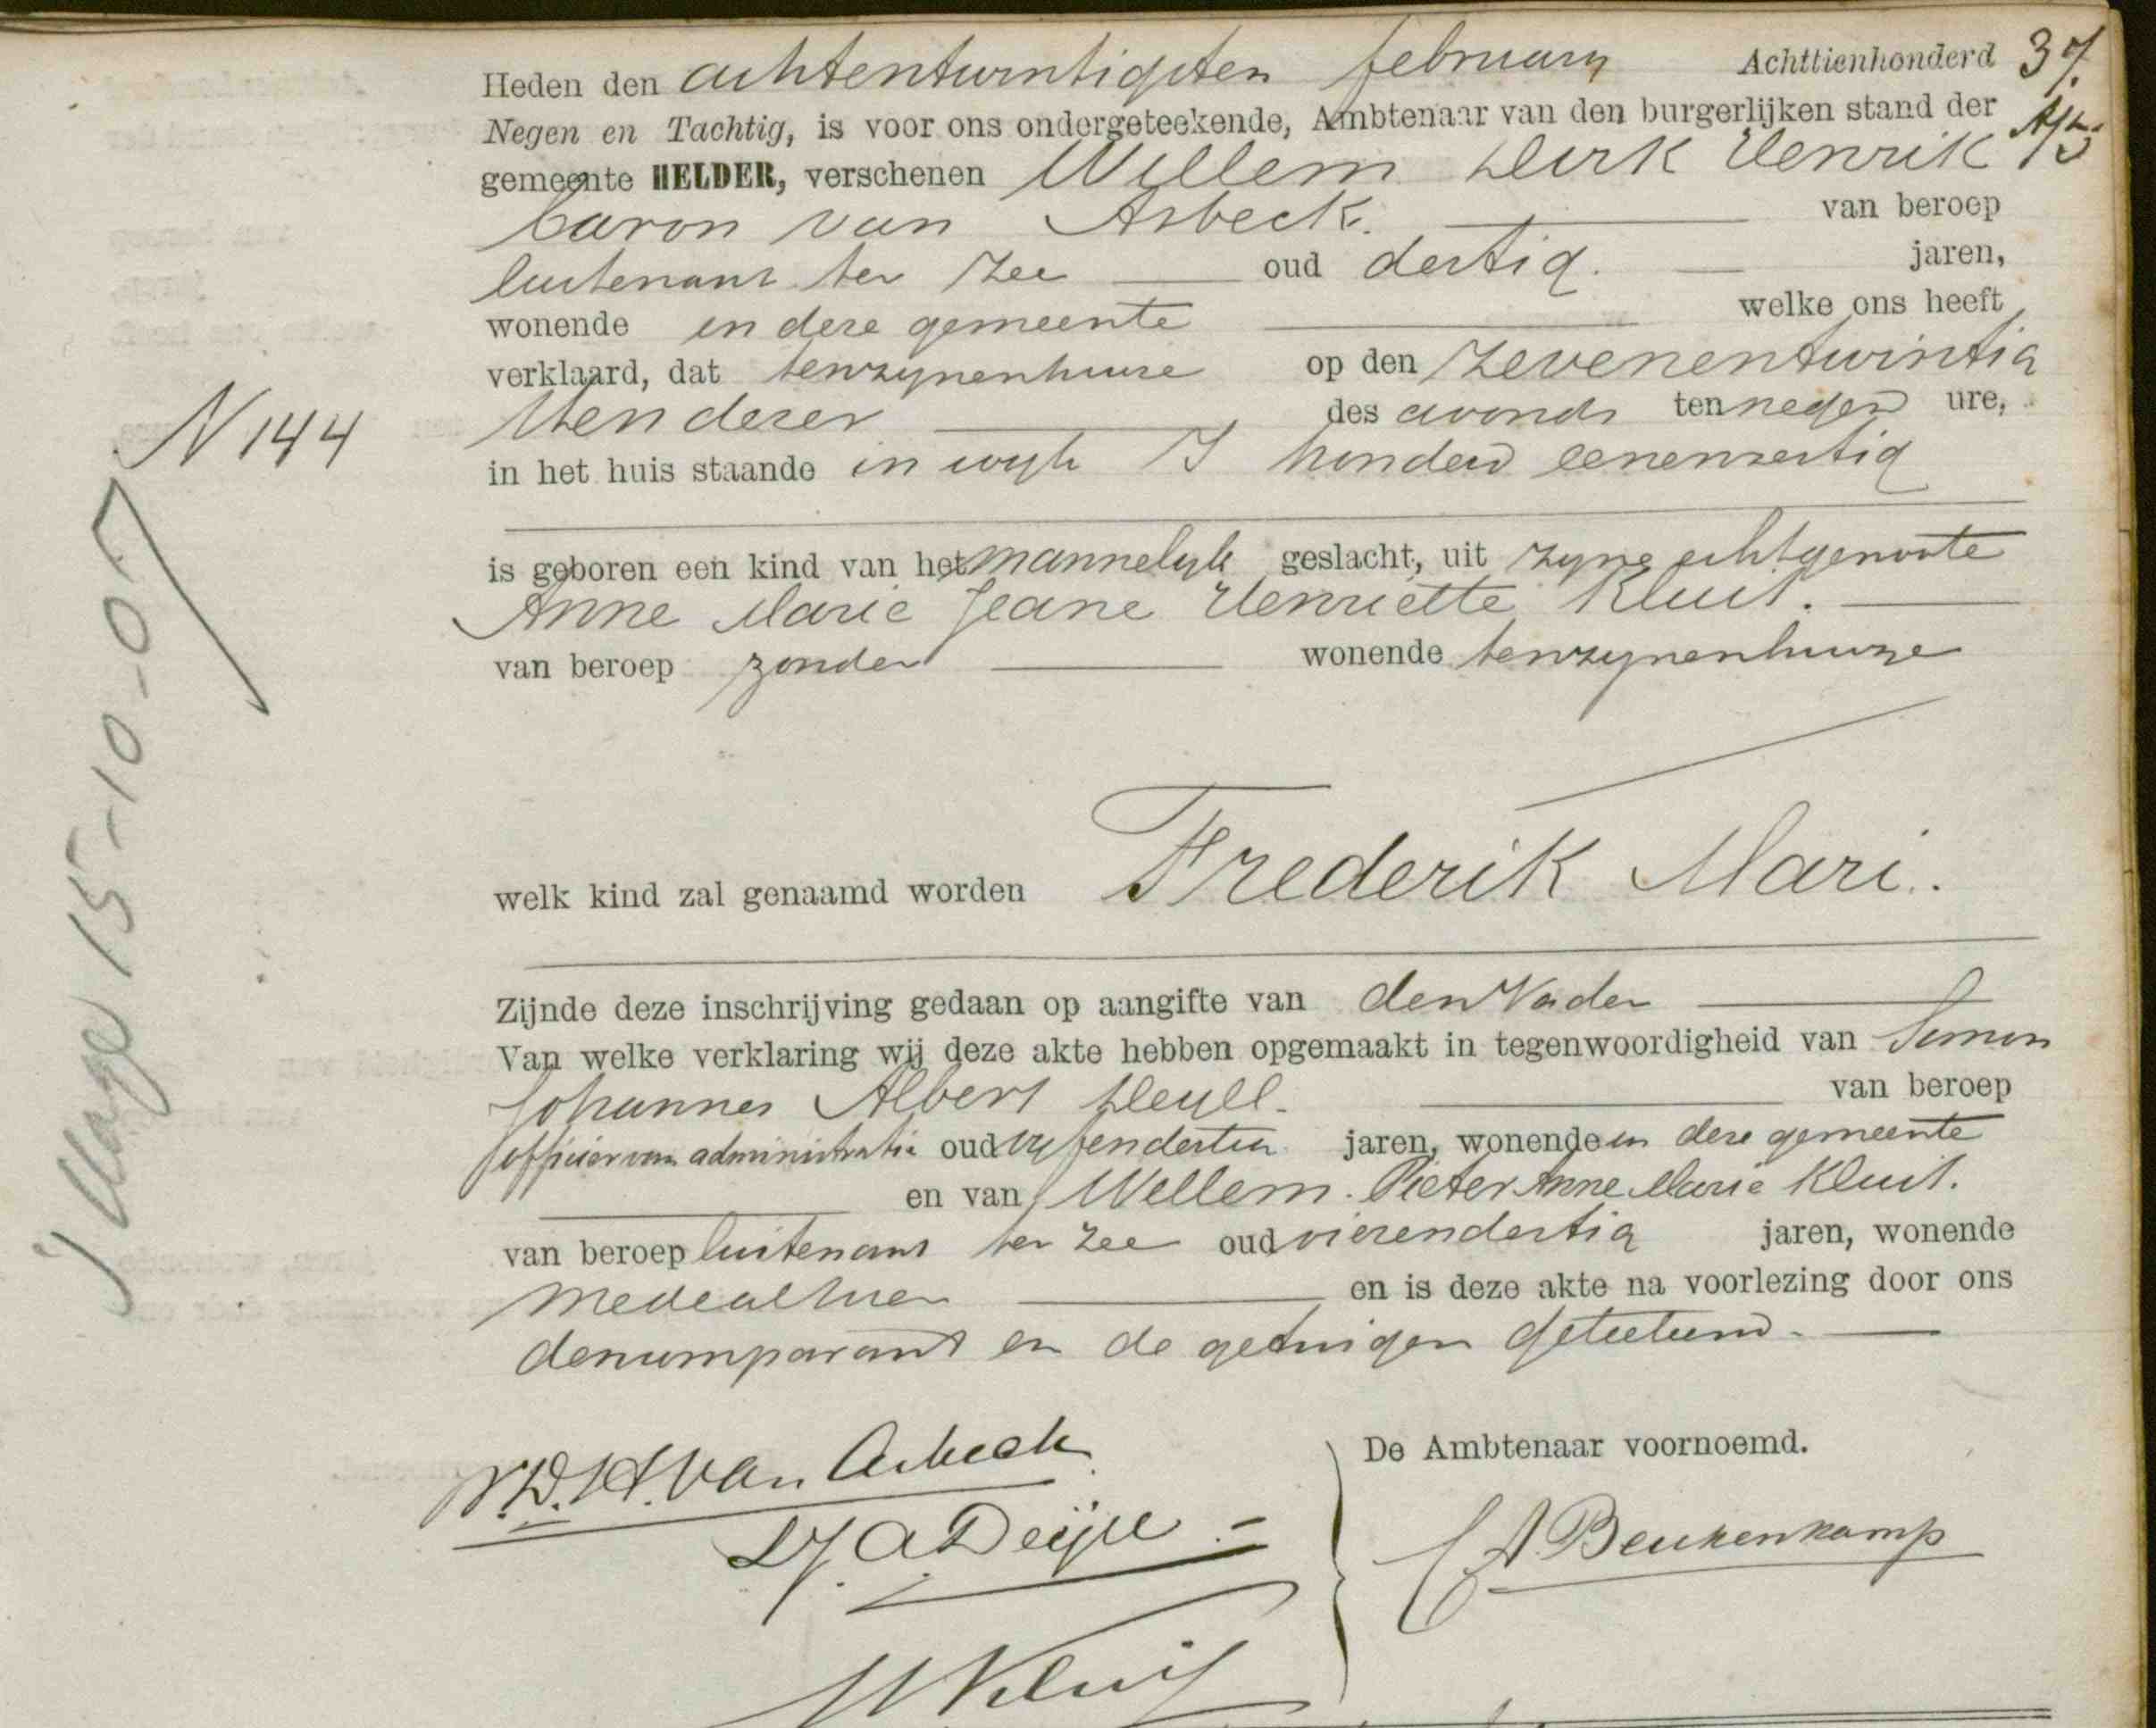 Heden den achtentwintigsten february Achttienhonderd 37.
Negen en Tachtig, is voor ons ondergeteekende, Ambtenaar van den burgerlijken stand der
gemeente HELDER, verschenen Willem Dirk Henrik
baron van Asbeck. van beroep
luitenant ter zee oud dertig. jaren,
wonende in deze gemeente welke ons heeft
verklaard, dat tenzynenhuize op den zevenentwintig
sten dezer des avonds ten negen ure,
N 144
in het huis staande in wyk I honderd eenenzestig
is geboren een kind van het mannelyk geslacht, uit zyne echtgenoote
Anne Marie Jeane Henriette Kluit.
van beroep zonder wonende tenzynenhuize
welk kind zal genaamd worden Frederik Mari.
Zijnde deze inschrijving gedaan op aangifte van den Vader
Van welke verklaring wij deze akte hebben opgemaakt in tegenwoordigheid van Simon
Johannes Albert Deyll. van beroep
officier van administratie oud vyfendertig jaren, wonende in deze gemeente
en van Willem Pieter Anne Marie Kluit.
van beroep luitenant ter zee oud vierendertig jaren, wonende
mede alhier en is deze akte na voorlezing door ons
den comparant en de getuigen geteekend.
W.D.H. van Asbeck
De Ambtenaar voornoemd.
Beukenkamp
W Kluit
's Hage 15-10-07